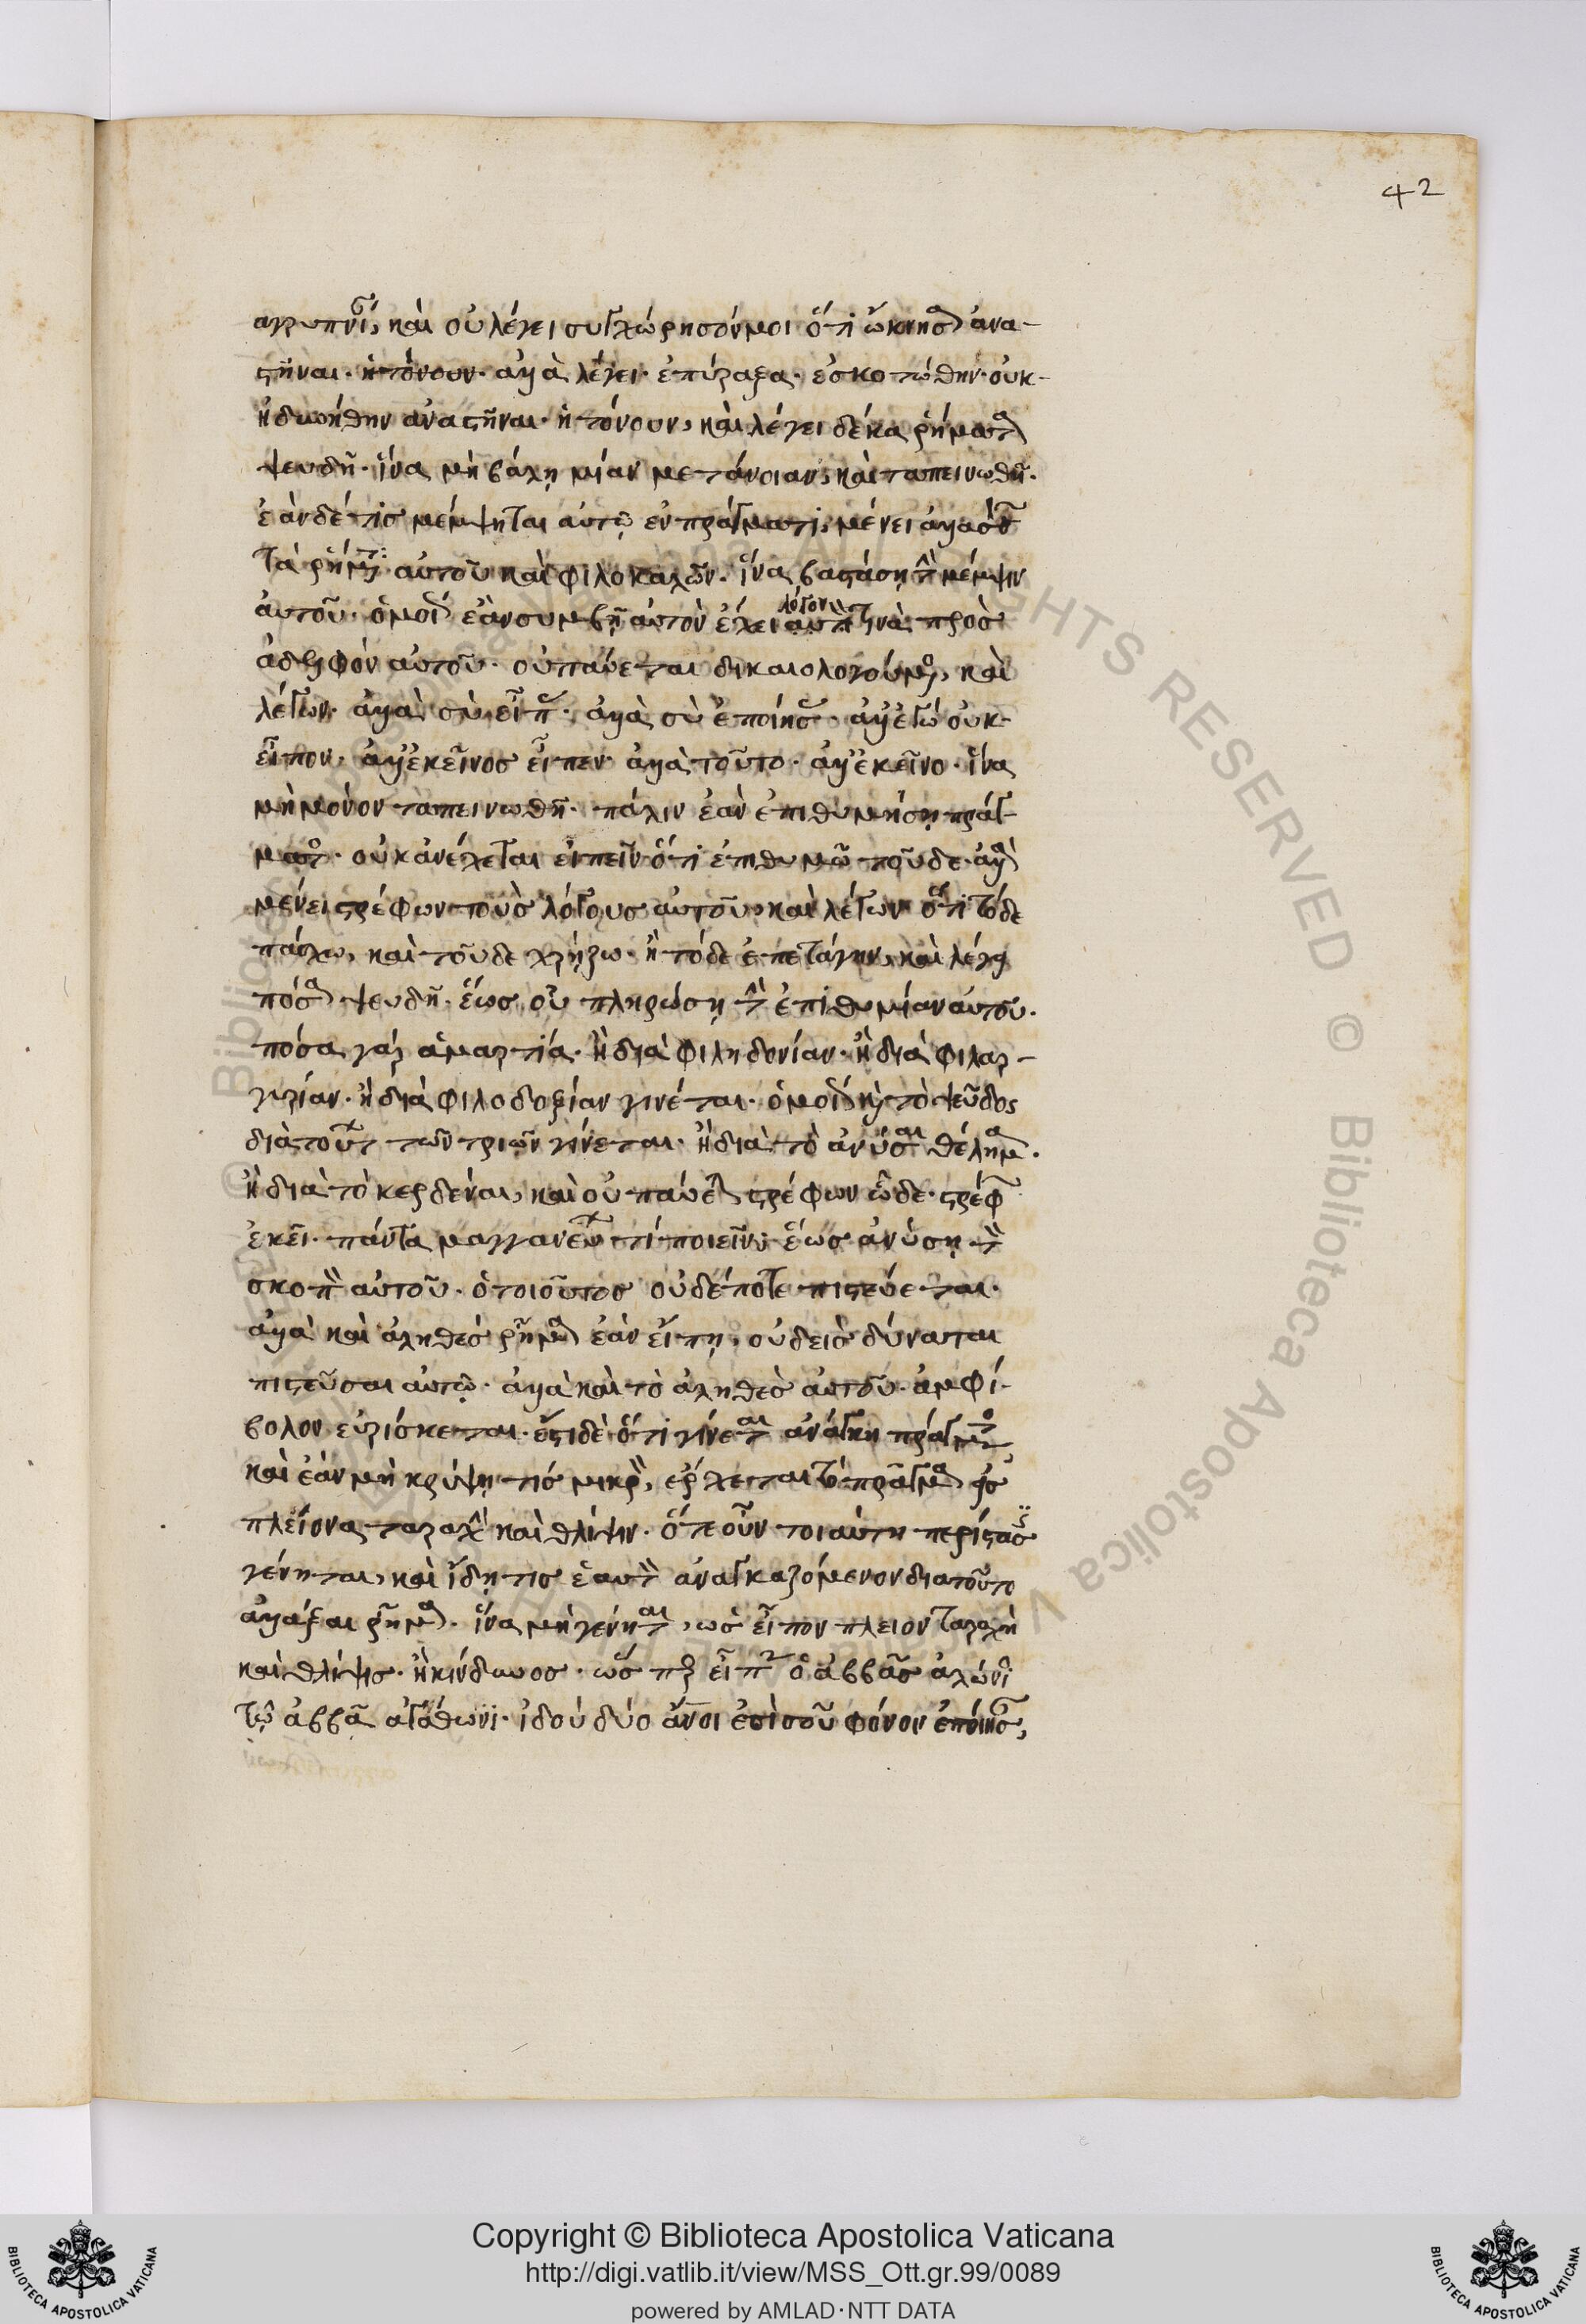 42
αγρυπνίαν, καὶ οὐ λέγει συγχώρησόν μοι ὅτι ὤκνησα ἀνα-
στῆναι· ἠτόνουν· ἀλλὰ λέγει· ἐπύραξα· ἐσκοτώθην· οὐκ-
ἠδυνήθην ἀναστῆναι· ἠτόνουν, καὶ λέγει δέκα ῥήματα
ψευδῆ· ἵνα μὴ βάλῃ μίαν μετάνοιαν, καὶ ταπεινωθῇ·
ἐὰν δέ τις μέμψηται αὐτῷ ἐν πράγματι, μένει ἀλλάσσων
τὰ ῥήματα αὐτοῦ καὶ φιλοκαλῶν· ἵνα βαστάσῃ τὴν μέμψιν
ἀυτοῦ· ὁμοίως ἐὰν συμβῇ αὐτὸν ἔχειν λόγον τινὰ πρὸς
ἀδελφόν αὐτοῦ· οὐ παύεται δικαιολογούμενος, καὶ
λέγων· ἀλλὰ σὺ εἶπες· ἀλλὰ σὺ ἐποίησας· ἀλλ' ἐγὼ οὐκ-
εἶπον· ἀλλ' ἐκεῖνος εἶπεν· ἀλλὰ τοῦτο· ἀλλ' ἐκεῖνο· ἵνα
μὴ μόνον ταπεινωθῇ· πάλιν ἐὰν ἐπιθυμήσῃ πράγ-
ματος· οὐκ ἀνέχεται εἰπεῖν ὅτι ἐπιθυμῶ τοῦδε· ἀλλὰ
μένει στρέφων τοὺς λόγους αὐτοῦ, καὶ λέγων ὅτι τόδε
πάσχω, καὶ τοῦδε χρῄζω· ἢ τόδε ἐπετάγην, καὶ λέγει
πόσα ψευδῆ· ἕως οὗ πληρώσῃ τὴν ἐπιθυμίαν αὐτοῦ·
πᾶσα γὰρ ἁμαρτία· ἢ διὰ φιληδονίαν· ἢ διὰ φιλαρ-
γυρίαν· ἢ διὰ φιλοδοξίαν γινέται· ὁμοίως καὶ τὸ ψεῦδος
διὰ τούτων τῶν τριῶν γίνεται· ἢ διὰ τὸ ἀνύσαι θέλημα·
ἢ διὰ τὸ κερδέναι, καὶ οὐ παύεται στρέφων ὧδε· στρέφων
ἐκεῖ· πάντα μαγγανεύων τί ποιεῖν, ἕως ἀνύσῃ τὸν
σκοπὸν αὐτοῦ· ὁ τοιοῦτος οὐδέποτε πιστεύεται·
ἀλλὰ καὶ ἀληθὲς ῥῆμα ἐὰν εἴπῃ, οὐδεὶς δύναται
πιστεῦσαι αὐτῷ· ἀλλὰ καὶ τὸ ἀληθὲς ἀυτοῦ· ἀμφί-
βολον εὑρίσκεται· ἔστι δὲ ὅτι γίνεται ἀνάγκη πράγματος
καὶ ἐὰν μὴ κρύψῃ τὶς μικρὸν, ἔρχεται τὸ πρᾶγμα εἰς
πλείονα ταραχὴν καὶ θλῖψιν· ὅτε οὖν τοιαύτη περίστασις
γένηται, καὶ ἴδῃ τις ἑαυτὸν ἀναγκαζόμενον διατοῦτο
ἀλλάξαι ῥῆμα· ἵνα μὴ γένηται, ὡς εἶπον πλείον ταραχὴ
καὶ θλίψις· ἢ κίνδυνος· ὥσπερ εἶπεν ὁ ἀββᾶς ἀλώνις
τῷ ἀββᾷ ἀγάθωνι· ἰδοὺ δύο ἄνοι ἐπὶ σοῦ φόνον ἐποίησαν,